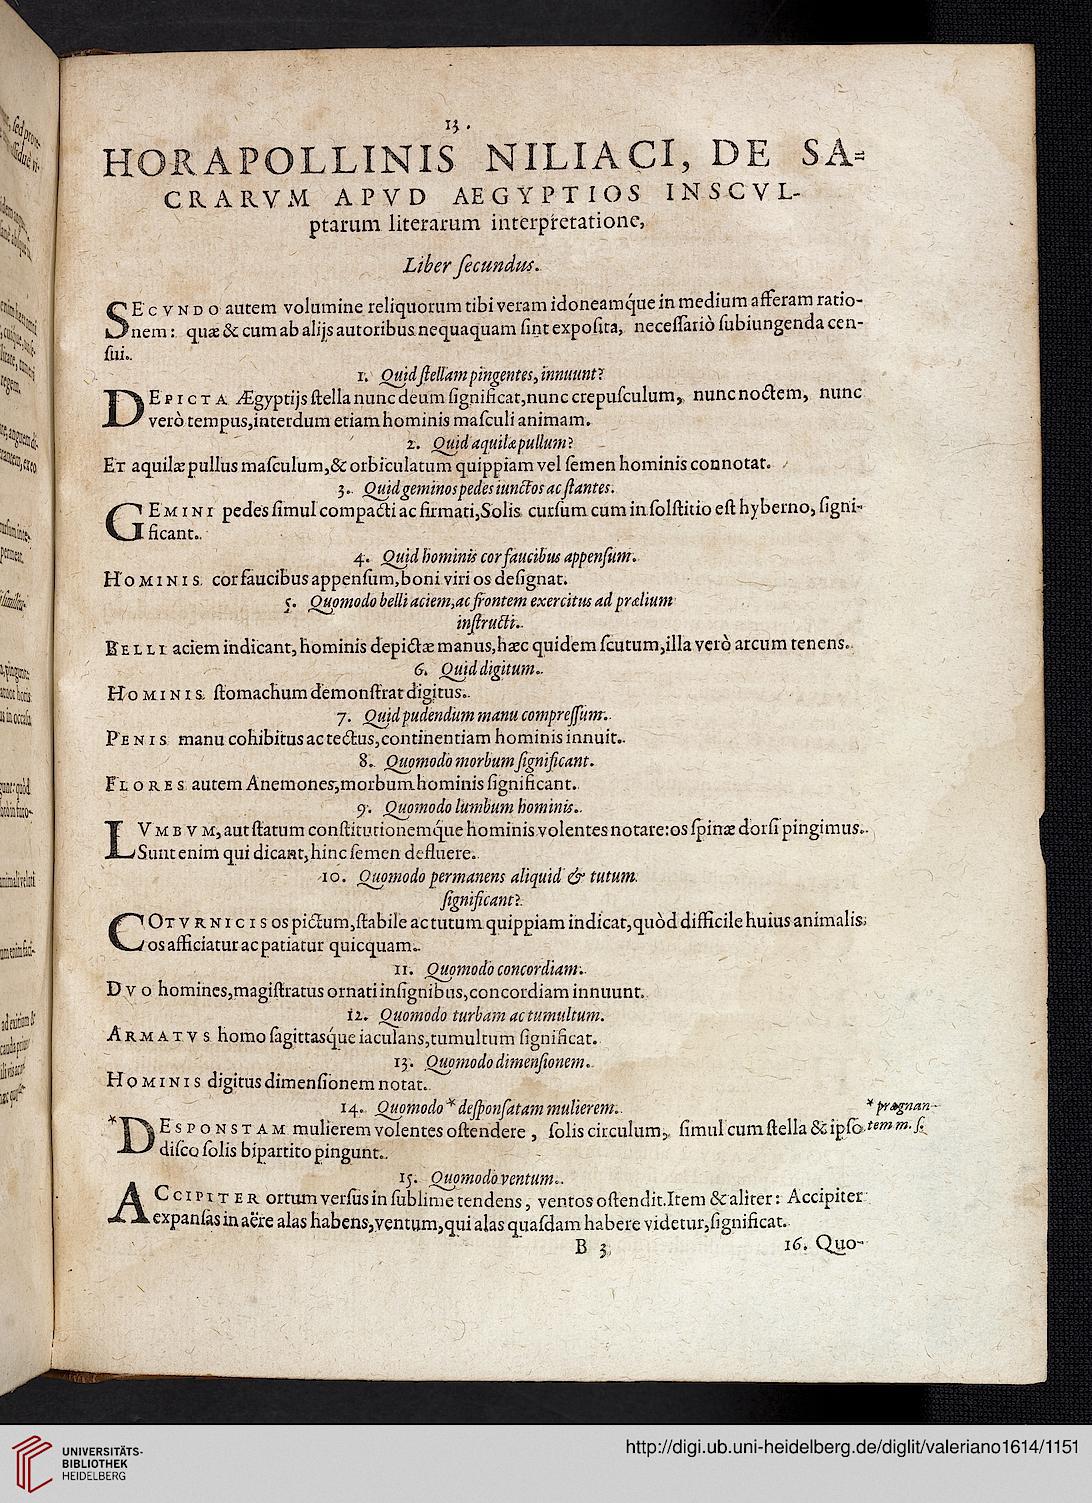 13.
HORAPOLLINIS NILIACI, DE SA=
CRARVM APVD AEGYPTIOS INSCVL-
ptarum literarum interpretatione,
Liber ſecundus.
SECVNDO autem volumine reliquorum tibi veram idoneamq́ue in medium afferam ratio-
nem: quæ & cum ab alijs autoribus nequaquam ſint expoſita, neceſſariò ſubiungenda cen-
ſui.
1. Quid ſtellam pingentes, innuunt?
DEPICTA Ægyptijs ſtella nunc deum ſignificat, nunc crepuſculum, nunc noctem, nunc
verò tempus, interdum etiam hominis maſculi animam.
2. Quid aquilæ pullum?
ET aquilæ pullus maſculum, & orbiculatum quippiam vel ſemen hominis connotat.
3. Quid geminos pedes iunctos ac ſtantes.
GEMINI pedes ſimul compacti ac firmati, Solis curſum cum in ſolſtitio eſt hyberno, ſigni-
ficant.
4. Quid hominis cor faucibus appenſum.
HOMINIS cor faucibus appenſum, boni viri os deſignat.
5. Quomodo belli aciem, ac frontem exercitus ad prælium
inſtructi.
BELLI aciem indicant, hominis depictæ manus, hæc quidem ſcutum, illa verò arcum tenens.
6. Quid digitum.
HOMINIS ſtomachum demonſtrat digitus.
7. Quid pudendum manu compreſſum.
PENIS manu cohibitus ac tectus, continentiam hominis innuit.
8. Quomodo morbum ſignificant.
FLORES autem Anemones, morbum hominis ſignificant.
9. Quomodo lumbum hominis.
LVMBVM, aut ſtatum conſtitutionemq́ue hominis volentes notare: os ſpinæ dorſi pingimus.
Sunt enim qui dicant, hinc ſemen defluere.
10. Quomodo permanens aliquid & tutum
ſignificant?
COTVRNICIS os pictum, ſtabile ac tutum quippiam indicat, quòd difficile huius animalis
os afficiatur ac patiatur quicquam.
11. Quomodo concordiam.
DVO homines, magiſtratus ornati inſignibus, concordiam innuunt.
12. Quomodo turbam ac tumultum.
ARMATVS homo ſagittasq́ue iaculans, tumultum ſignificat.
13. Quomodo dimenſionem.
HOMINIS digitus dimenſionem notat.
14. Quomodo * deſponſatam mulierem.
* prægnan-
tem m. ſ.
*DESPONSTAM mulierem volentes oſtendere, ſolis circulum, ſimul cum ſtella & ipſo
diſco ſolis bipartito pingunt.
15. Quomodo ventum.
ACCIPITER ortum verſus in ſublime tendens, ventos oſtendit. Item & aliter: Accipiter
expanſas in aëre alas habens, ventum, qui alas quaſdam habere videtur, ſignificat.
B 3
16. Quo-
UNIVERSITÄTS-
BIBLIOTHEK
HEIDELBERG
http://digi.ub.uni-heidelberg.de/diglit/valeriano1614/1151